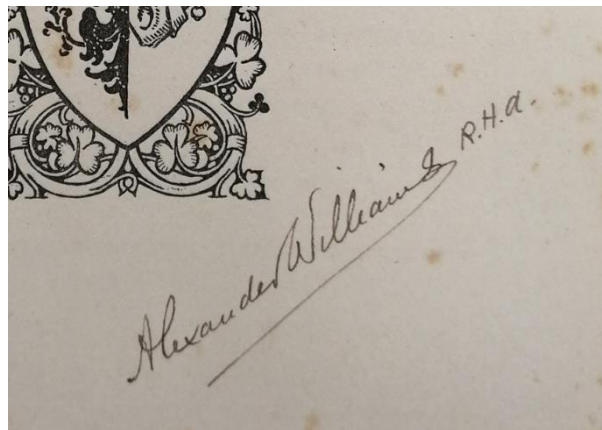 Alexander Williams R.H.A.